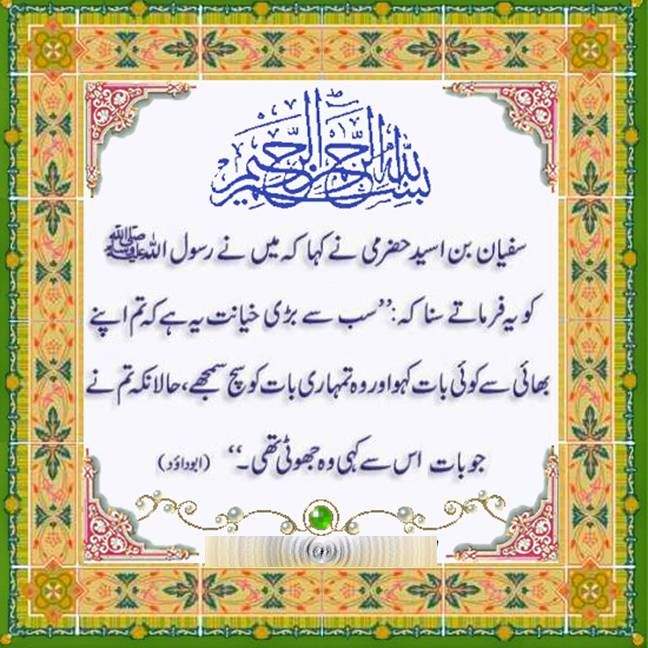 بسم الله الرحمن الرحيم
سفیان بن اسید حضرمی نے کہا کہ میں نے رسول اللہ ﷺ
کو یہ فرماتے سنا کہ: ’’سب سے بڑی خیانت یہ ہے کہ تم اپنے
بھائی سے کوئی بات کہو اور وہ تمہاری بات کو سچ سمجھے، حالانکہ تم نے
جو بات اس سے کہی وہ جھوٹی تھی۔‘‘ (ابوداؤد)